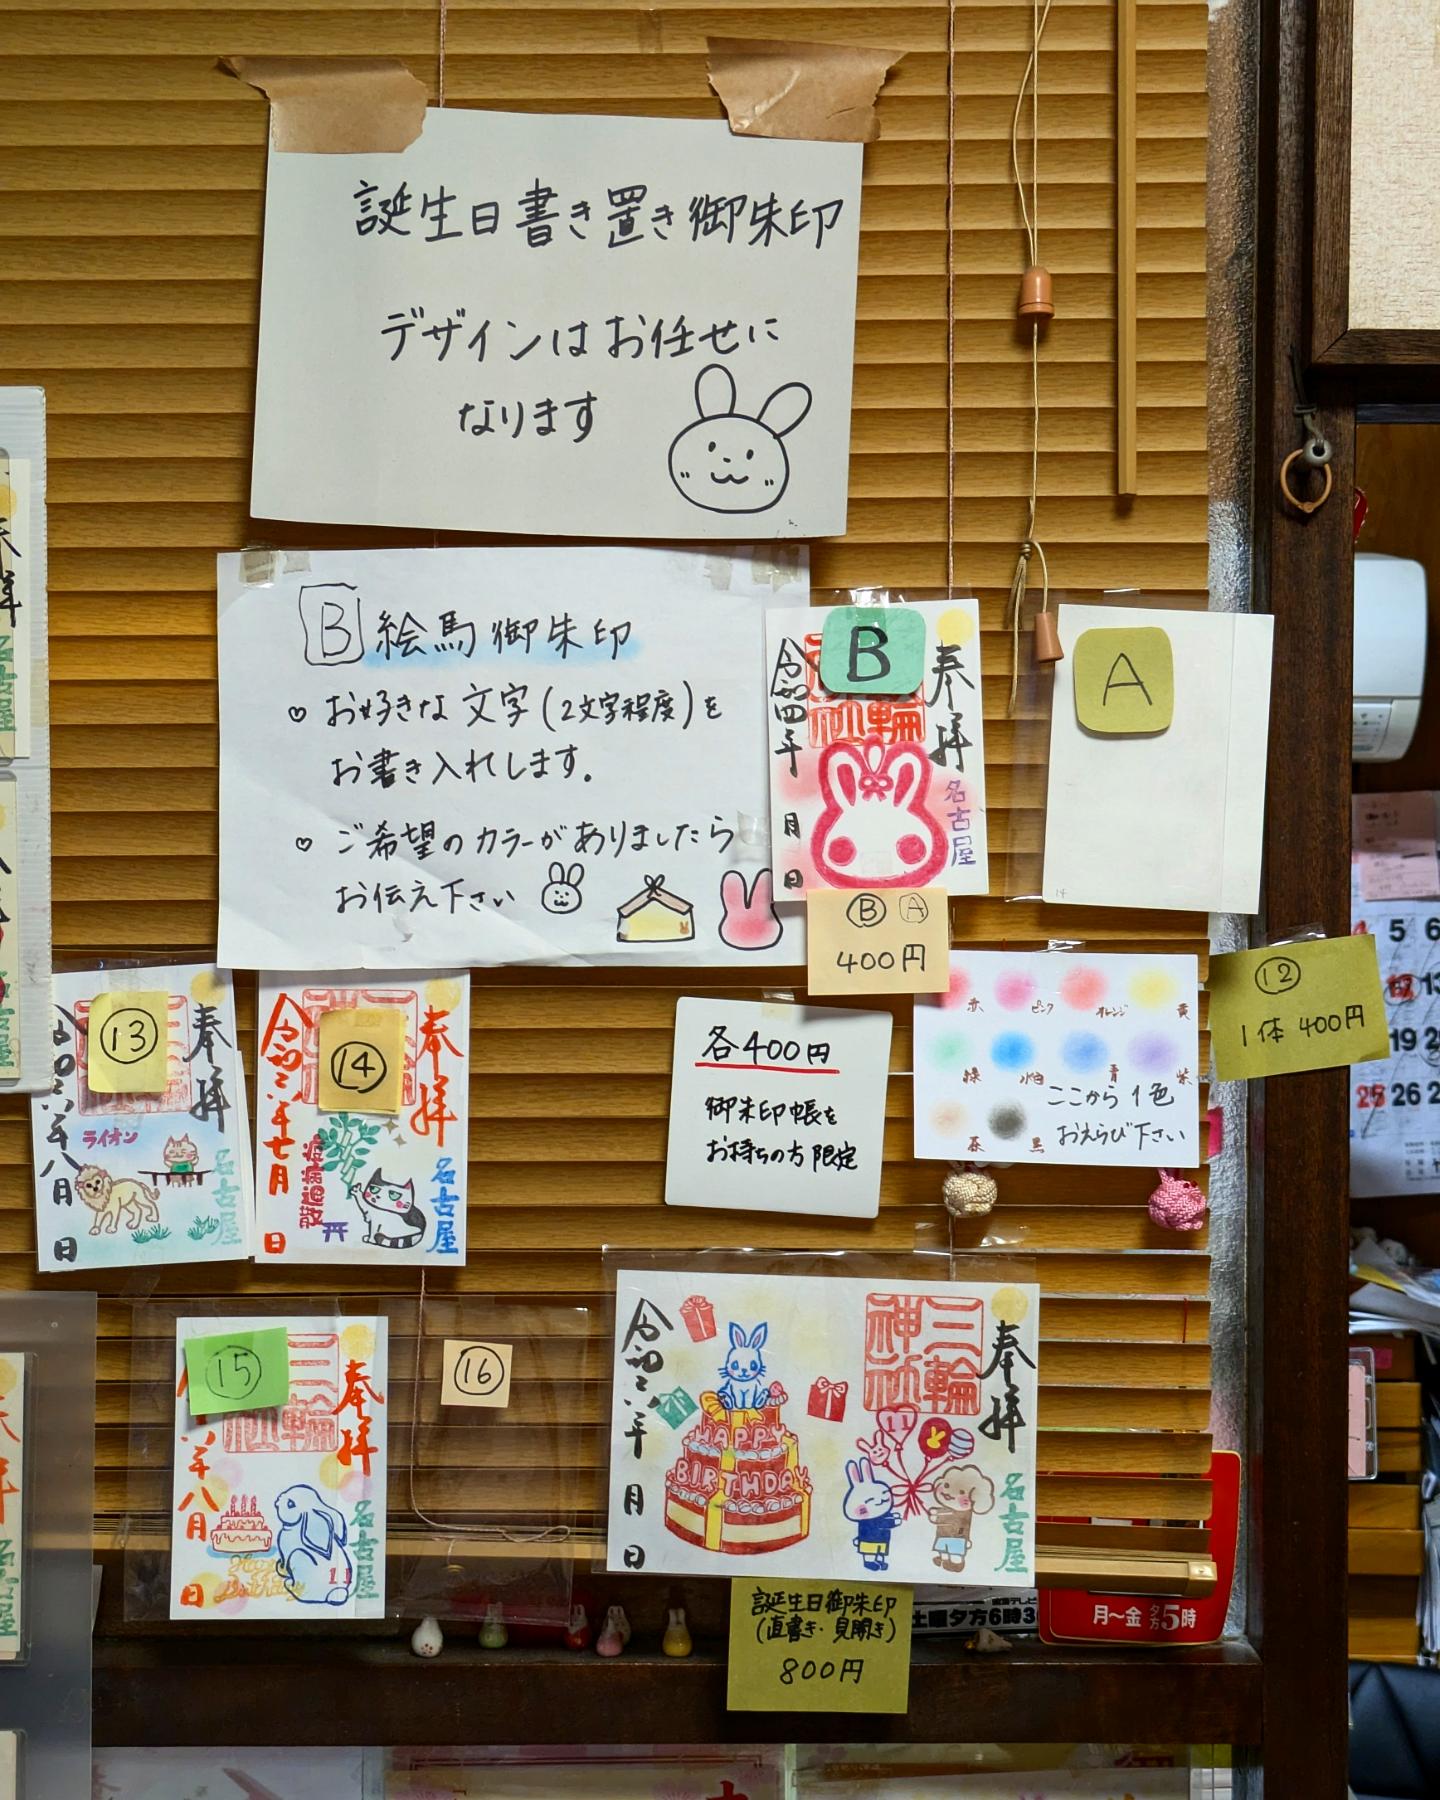 誕生日書き置き御朱印
デザインはお任せに
なります
B 絵馬御朱印
♡ お好きな文字(2文字程度)を
お書き入れします。
♡ ご希望のカラーがありましたら
お伝え下さい
B
奉拝
令和四年 月 日
名古屋
A
Ⓑ Ⓐ
400円
⑫
1体 400円
赤 ピンク オレンジ 黄
緑 水色 青 紫
茶 黒
ここから1色
おえらび下さい
各400円
御朱印帳を
お持ちの方限定
⑬
奉拝
八月 日
ライオン
名古屋
⑭
奉拝
七月 日
疫病退散
名古屋
⑮
奉拝
年八月 日
Happy
Birthday
名古屋
⑯
奉拝
三輪
神社
月 日
HAPPY
BIRTHDAY
名古屋
誕生日御朱印
(直書き・見開き)
800円
土曜夕方6時3
月〜金 夕方5時
5 6
12 13
19 2
25 26 2